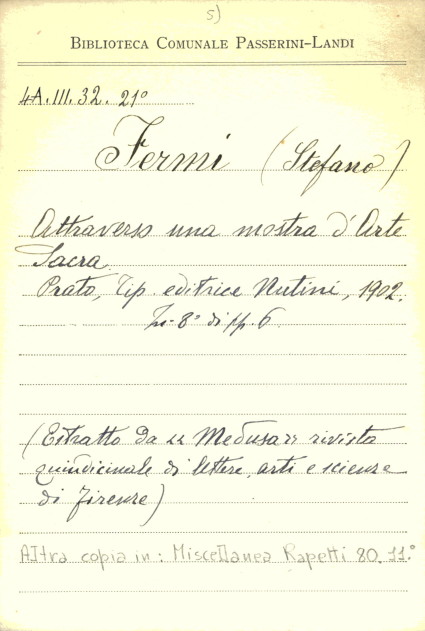 5)
BIBLIOTECA COMUNALE PASSERINI-LANDI
4A.III.32. 21°
Fermi (Stefano)
Attraverso una mostra d'Arte
Sacra.
Prato, Tip. editrice Nutini, 1902.
In-8° di pp. 6.
(Estratto da "Medusa" rivista
quindicinale di lettere, arti e scienze
di Firenze)
Altra copia in: Miscellanea Rapetti 80. 11.°